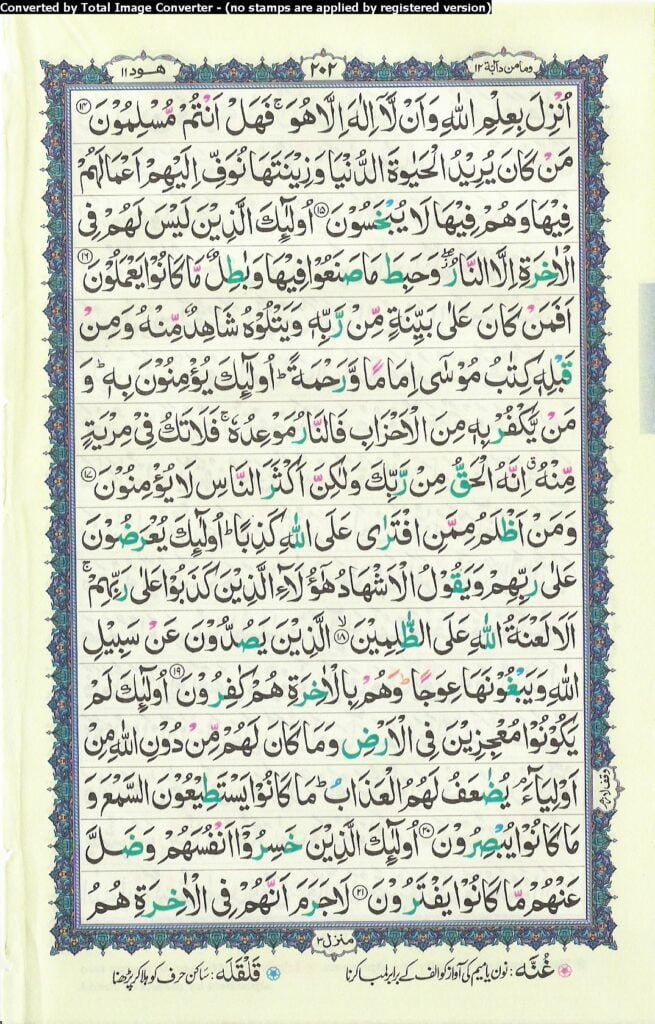 Converted by Total Image Converter - (no stamps are applied by registered version)
ومامن دآبة ١٢
٢٠٢
هود ١١
اُنْزِلَ بِعِلْمِ اللّٰهِ وَاَنْ لَّاۤ اِلٰهَ اِلَّا هُوَ ۚ فَهَلْ اَنْتُمْ مُّسْلِمُوْنَ ۝۱۴
مَنْ كَانَ يُرِيْدُ الْحَيٰوةَ الدُّنْيَا وَزِيْنَتَهَا نُوَفِّ اِلَيْهِمْ اَعْمَالَهُمْ
فِيْهَا وَهُمْ فِيْهَا لَا يُبْخَسُوْنَ ۝۱۵ اُولٰٓئِكَ الَّذِيْنَ لَيْسَ لَهُمْ فِى
الْاٰخِرَةِ اِلَّا النَّارُ ۖ وَحَبِطَ مَا صَنَعُوْا فِيْهَا وَبٰطِلٌ مَّا كَانُوْا يَعْمَلُوْنَ ۝۱۶
اَفَمَنْ كَانَ عَلٰى بَيِّنَةٍ مِّنْ رَّبِّهٖ وَيَتْلُوْهُ شَاهِدٌ مِّنْهُ وَمِنْ
قَبْلِهٖ كِتٰبُ مُوْسٰٓى اِمَامًا وَّرَحْمَةً ؕ اُولٰٓئِكَ يُؤْمِنُوْنَ بِهٖ ؕ وَ
مَنْ يَّكْفُرْ بِهٖ مِنَ الْاَحْزَابِ فَالنَّارُ مَوْعِدُهٗ ۚ فَلَا تَكُ فِىْ مِرْيَةٍ
مِّنْهُ ۗ اِنَّهُ الْحَقُّ مِنْ رَّبِّكَ وَلٰكِنَّ اَكْثَرَ النَّاسِ لَا يُؤْمِنُوْنَ ۝۱۷
وَمَنْ اَظْلَمُ مِمَّنِ افْتَرٰى عَلَى اللّٰهِ كَذِبًا ؕ اُولٰٓئِكَ يُعْرَضُوْنَ
عَلٰى رَبِّهِمْ وَيَقُوْلُ الْاَشْهَادُ هٰٓؤُلَآءِ الَّذِيْنَ كَذَبُوْا عَلٰى رَبِّهِمْ ۚ
اَلَا لَعْنَةُ اللّٰهِ عَلَى الظّٰلِمِيْنَ ۙ ۝۱۸ الَّذِيْنَ يَصُدُّوْنَ عَنْ سَبِيْلِ
اللّٰهِ وَيَبْغُوْنَهَا عِوَجًا ؕ وَهُمْ بِالْاٰخِرَةِ هُمْ كٰفِرُوْنَ ۝۱۹ اُولٰٓئِكَ لَمْ
يَكُوْنُوْا مُعْجِزِيْنَ فِى الْاَرْضِ وَمَا كَانَ لَهُمْ مِّنْ دُوْنِ اللّٰهِ مِنْ
اَوْلِيَآءَ ۘ يُضٰعَفُ لَهُمُ الْعَذَابُ ؕ مَا كَانُوْا يَسْتَطِيْعُوْنَ السَّمْعَ وَ
وقف لازم
مَا كَانُوْا يُبْصِرُوْنَ ۝۲۰ اُولٰٓئِكَ الَّذِيْنَ خَسِرُوْۤا اَنْفُسَهُمْ وَضَلَّ
عَنْهُمْ مَّا كَانُوْا يَفْتَرُوْنَ ۝۲۱ لَا جَرَمَ اَنَّهُمْ فِى الْاٰخِرَةِ هُمُ
منزل ٣
غُنَّه: نون یا میم کی آواز کو الف کے برابر لمبا کرنا
قَلْقَلَه: ساکن حرف کو ہلا کر پڑھنا